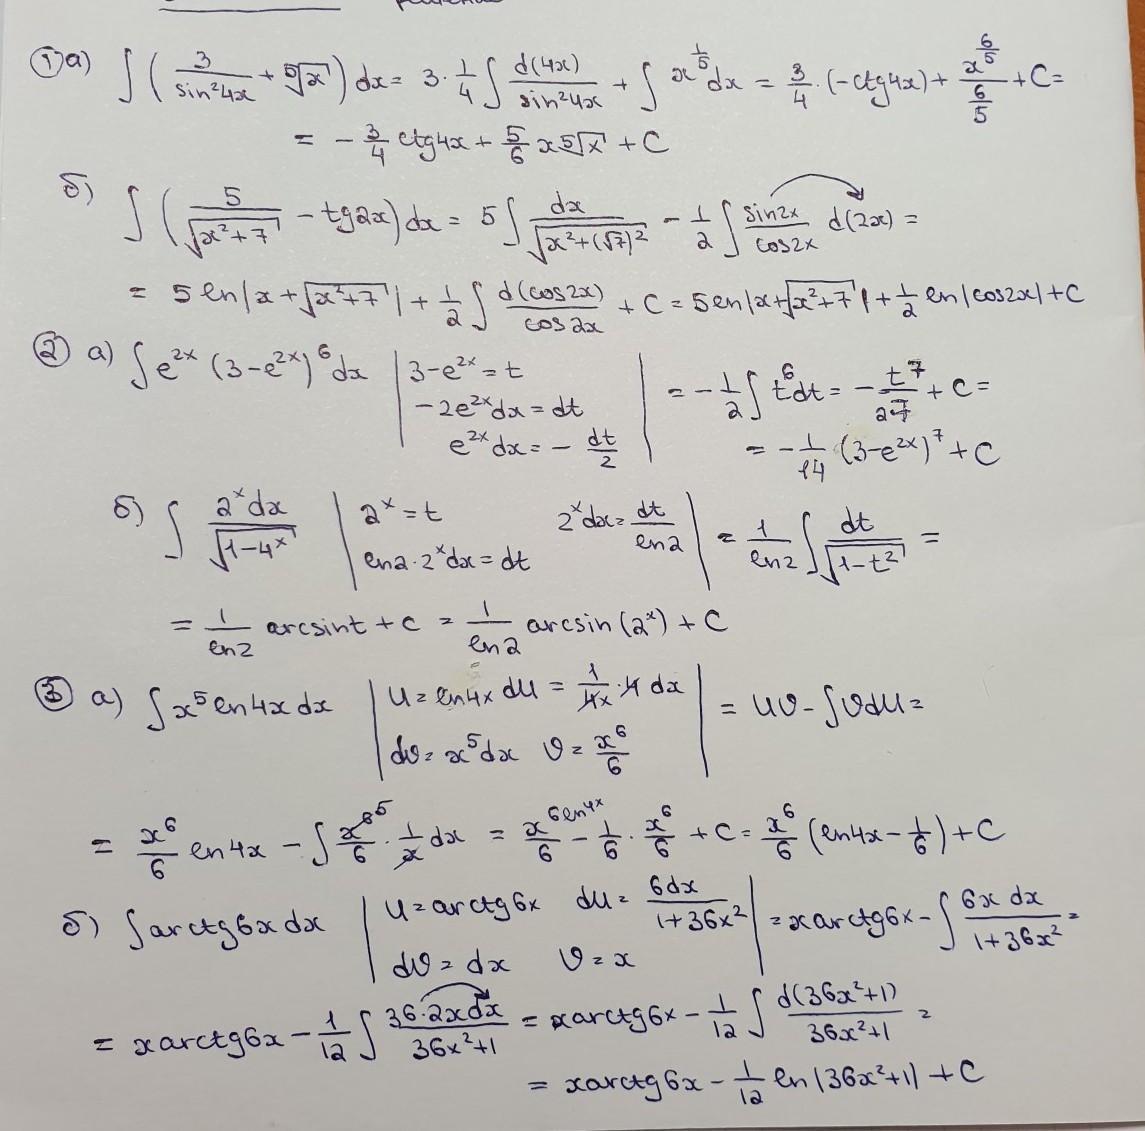 ① а) ∫ (3/sin²4x + ⁵√x) dx = 3·1/4 ∫ d(4x)/sin²4x + ∫ x^(1/5) dx = 3/4·(-ctg4x) + x^(6/5)/(6/5) + C =
= -3/4 ctg4x + 5/6 x ⁵√x + C
б) ∫ (5/√(x²+7) - tg2x) dx = 5 ∫ dx/√(x²+(√7)²) - 1/2 ∫ sin2x/cos2x d(2x) =
= 5 ln|x+√(x²+7)| + 1/2 ∫ d(cos2x)/cos2x + C = 5 ln|x+√(x²+7)| + 1/2 ln|cos2x| + C
② а) ∫ e^(2x) (3-e^(2x))^6 dx | 3-e^(2x) = t
-2e^(2x)dx = dt
e^(2x)dx = -dt/2 | = -1/2 ∫ t^6 dt = -t^7/(2·7) + C =
= -1/14 (3-e^(2x))^7 + C
б) ∫ 2^x dx/√(1-4^x) | 2^x = t 2^x dx = dt/ln2
ln2·2^x dx = dt | = 1/ln2 ∫ dt/√(1-t²) =
= 1/ln2 arcsint + C = 1/ln2 arcsin(2^x) + C
③ а) ∫ x^5 ln4x dx | U = ln4x dU = 1/4x · 4 dx
dv = x^5 dx v = x^6/6 | = Uv - ∫ v dU =
= x^6/6 ln4x - ∫ x^6/6 · 1/x dx = x^6 ln4x/6 - 1/6 · x^6/6 + C = x^6/6 (ln4x - 1/6) + C
б) ∫ arctg6x dx | U = arctg6x dU = 6dx/(1+36x²)
dv = dx v = x | = x arctg6x - ∫ 6x dx/(1+36x²) =
= x arctg6x - 1/12 ∫ 36·2x dx/(36x²+1) = x arctg6x - 1/12 ∫ d(36x²+1)/(36x²+1) =
= x arctg6x - 1/12 ln|36x²+1| + C